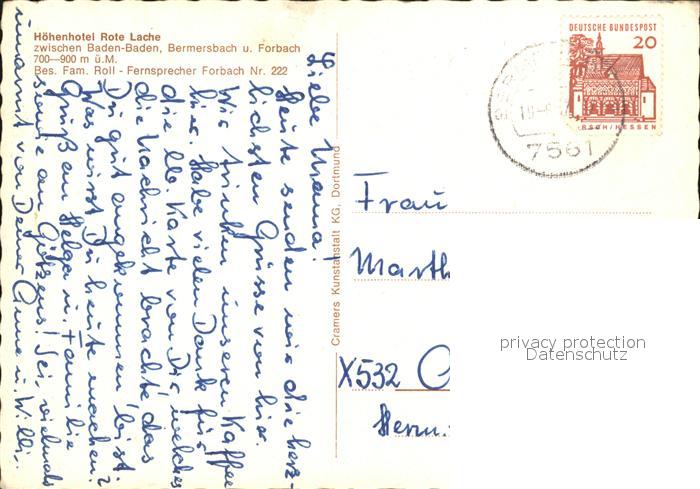 Höhenhotel Rote Lache
zwischen Baden-Baden, Bermersbach u. Forbach
700—900 m ü.M.
Bes. Fam. Roll - Fernsprecher Forbach Nr. 222
Liebe Mama!
Heute senden wir die herz-
lichsten Grüsse von hier.
Wir trinken unseren Kaffee
hier. Habe vielen Dank für
die lb Karte von Dir, welches
die Nachricht brachte, das
Du gut angekommen bist.
Was wirst Du heute machen?
Gruß an Helga u. Familie
sowie an Götzens! Sei, vielmals
umarmt von Deiner u. Willi.
Cramers Kunstanstalt KG, Dortmund
DEUTSCHE BUNDESPOST
20
RSCH/HESSEN
7561
Frau
Marth
X532
Herm.
privacy protection
Datenschutz